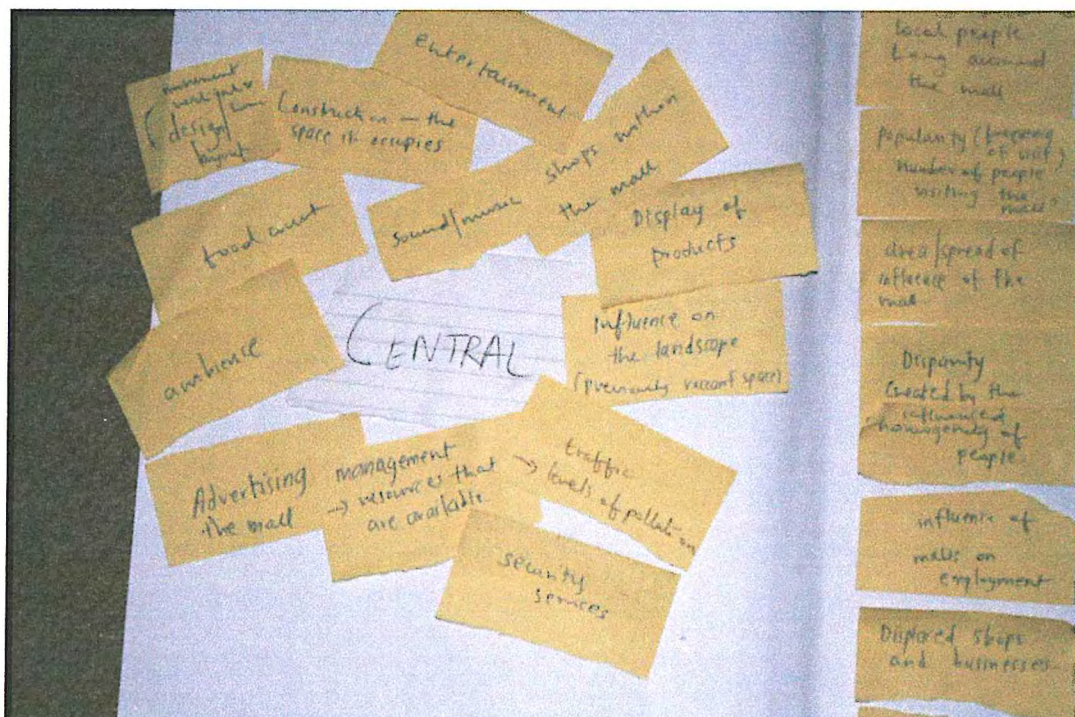 entertainment
movement
design/
layout
Construction — the
space it occupies
shops within
the mall
food court
sound/music
Display of
products
ambience
CENTRAL
Influence on
the landscape
(previously vacant space)
Advertising
the mall
management
→ resources that
are available
→ traffic
levels of pollution
security
services
local people
living around
the mall
popularity (frequency
of visit)
number of people
visiting the
mall
area/spread of
influence of the
mall
Disparity
created by the
homogenity of
people
influence of
malls on
employment
shops
and businesses